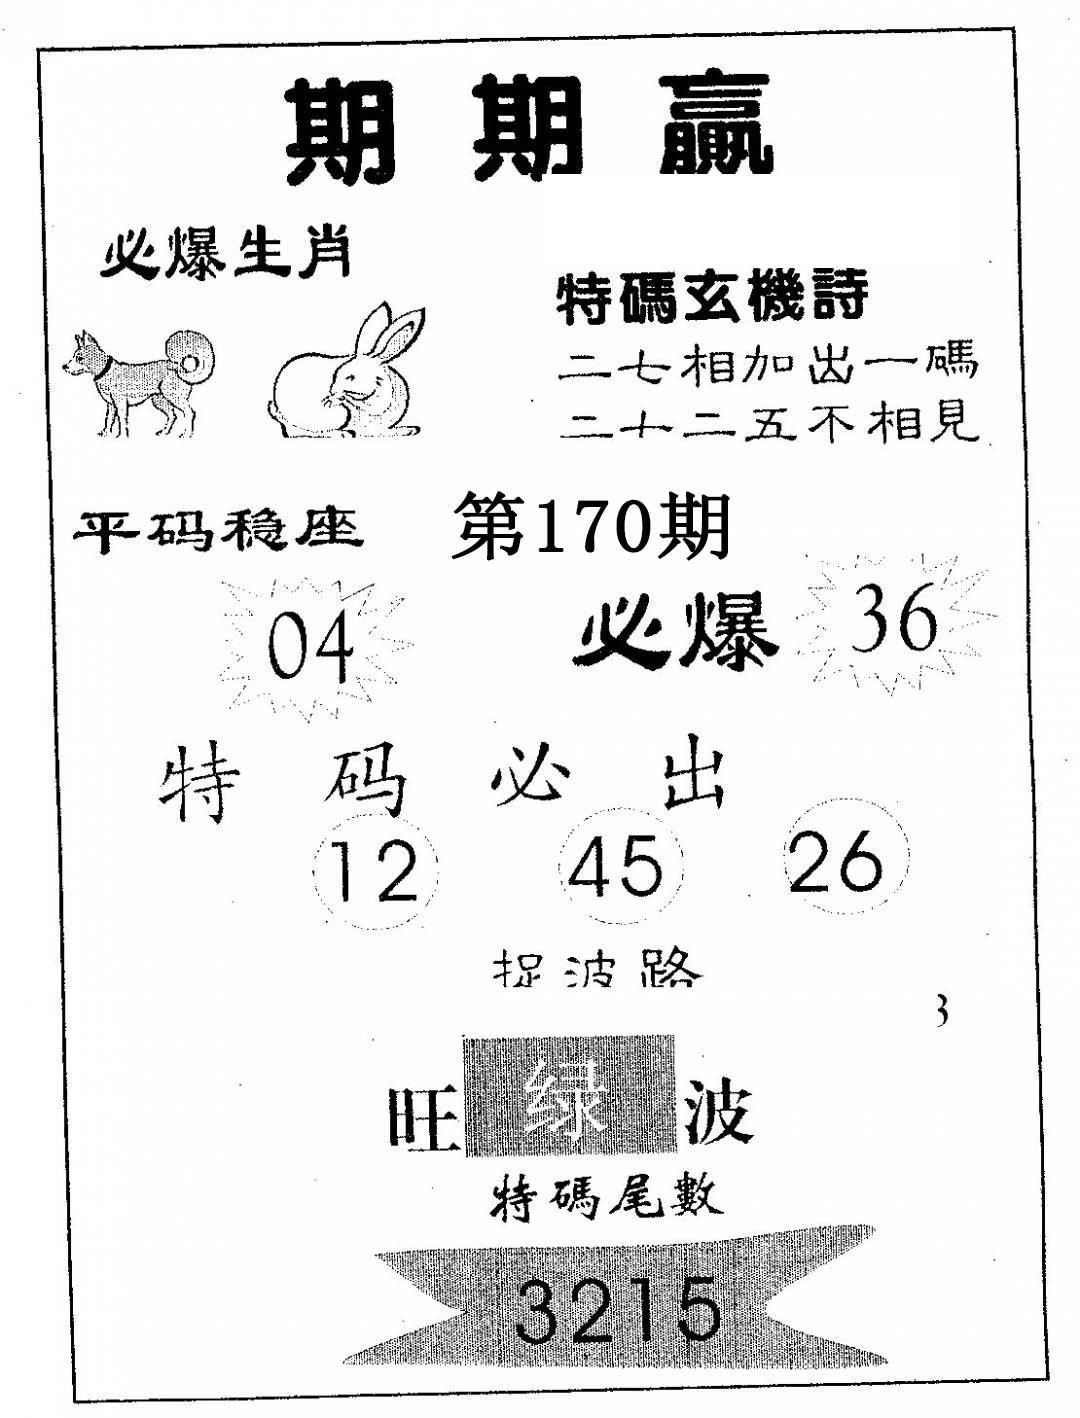 期期贏
必爆生肖
特碼玄機詩
二七相加出一碼
二十二五不相見
平码稳座
第170期
04
必爆
36
特码必出
12 45 26
捉波路
3
旺绿波
特碼尾數
3215